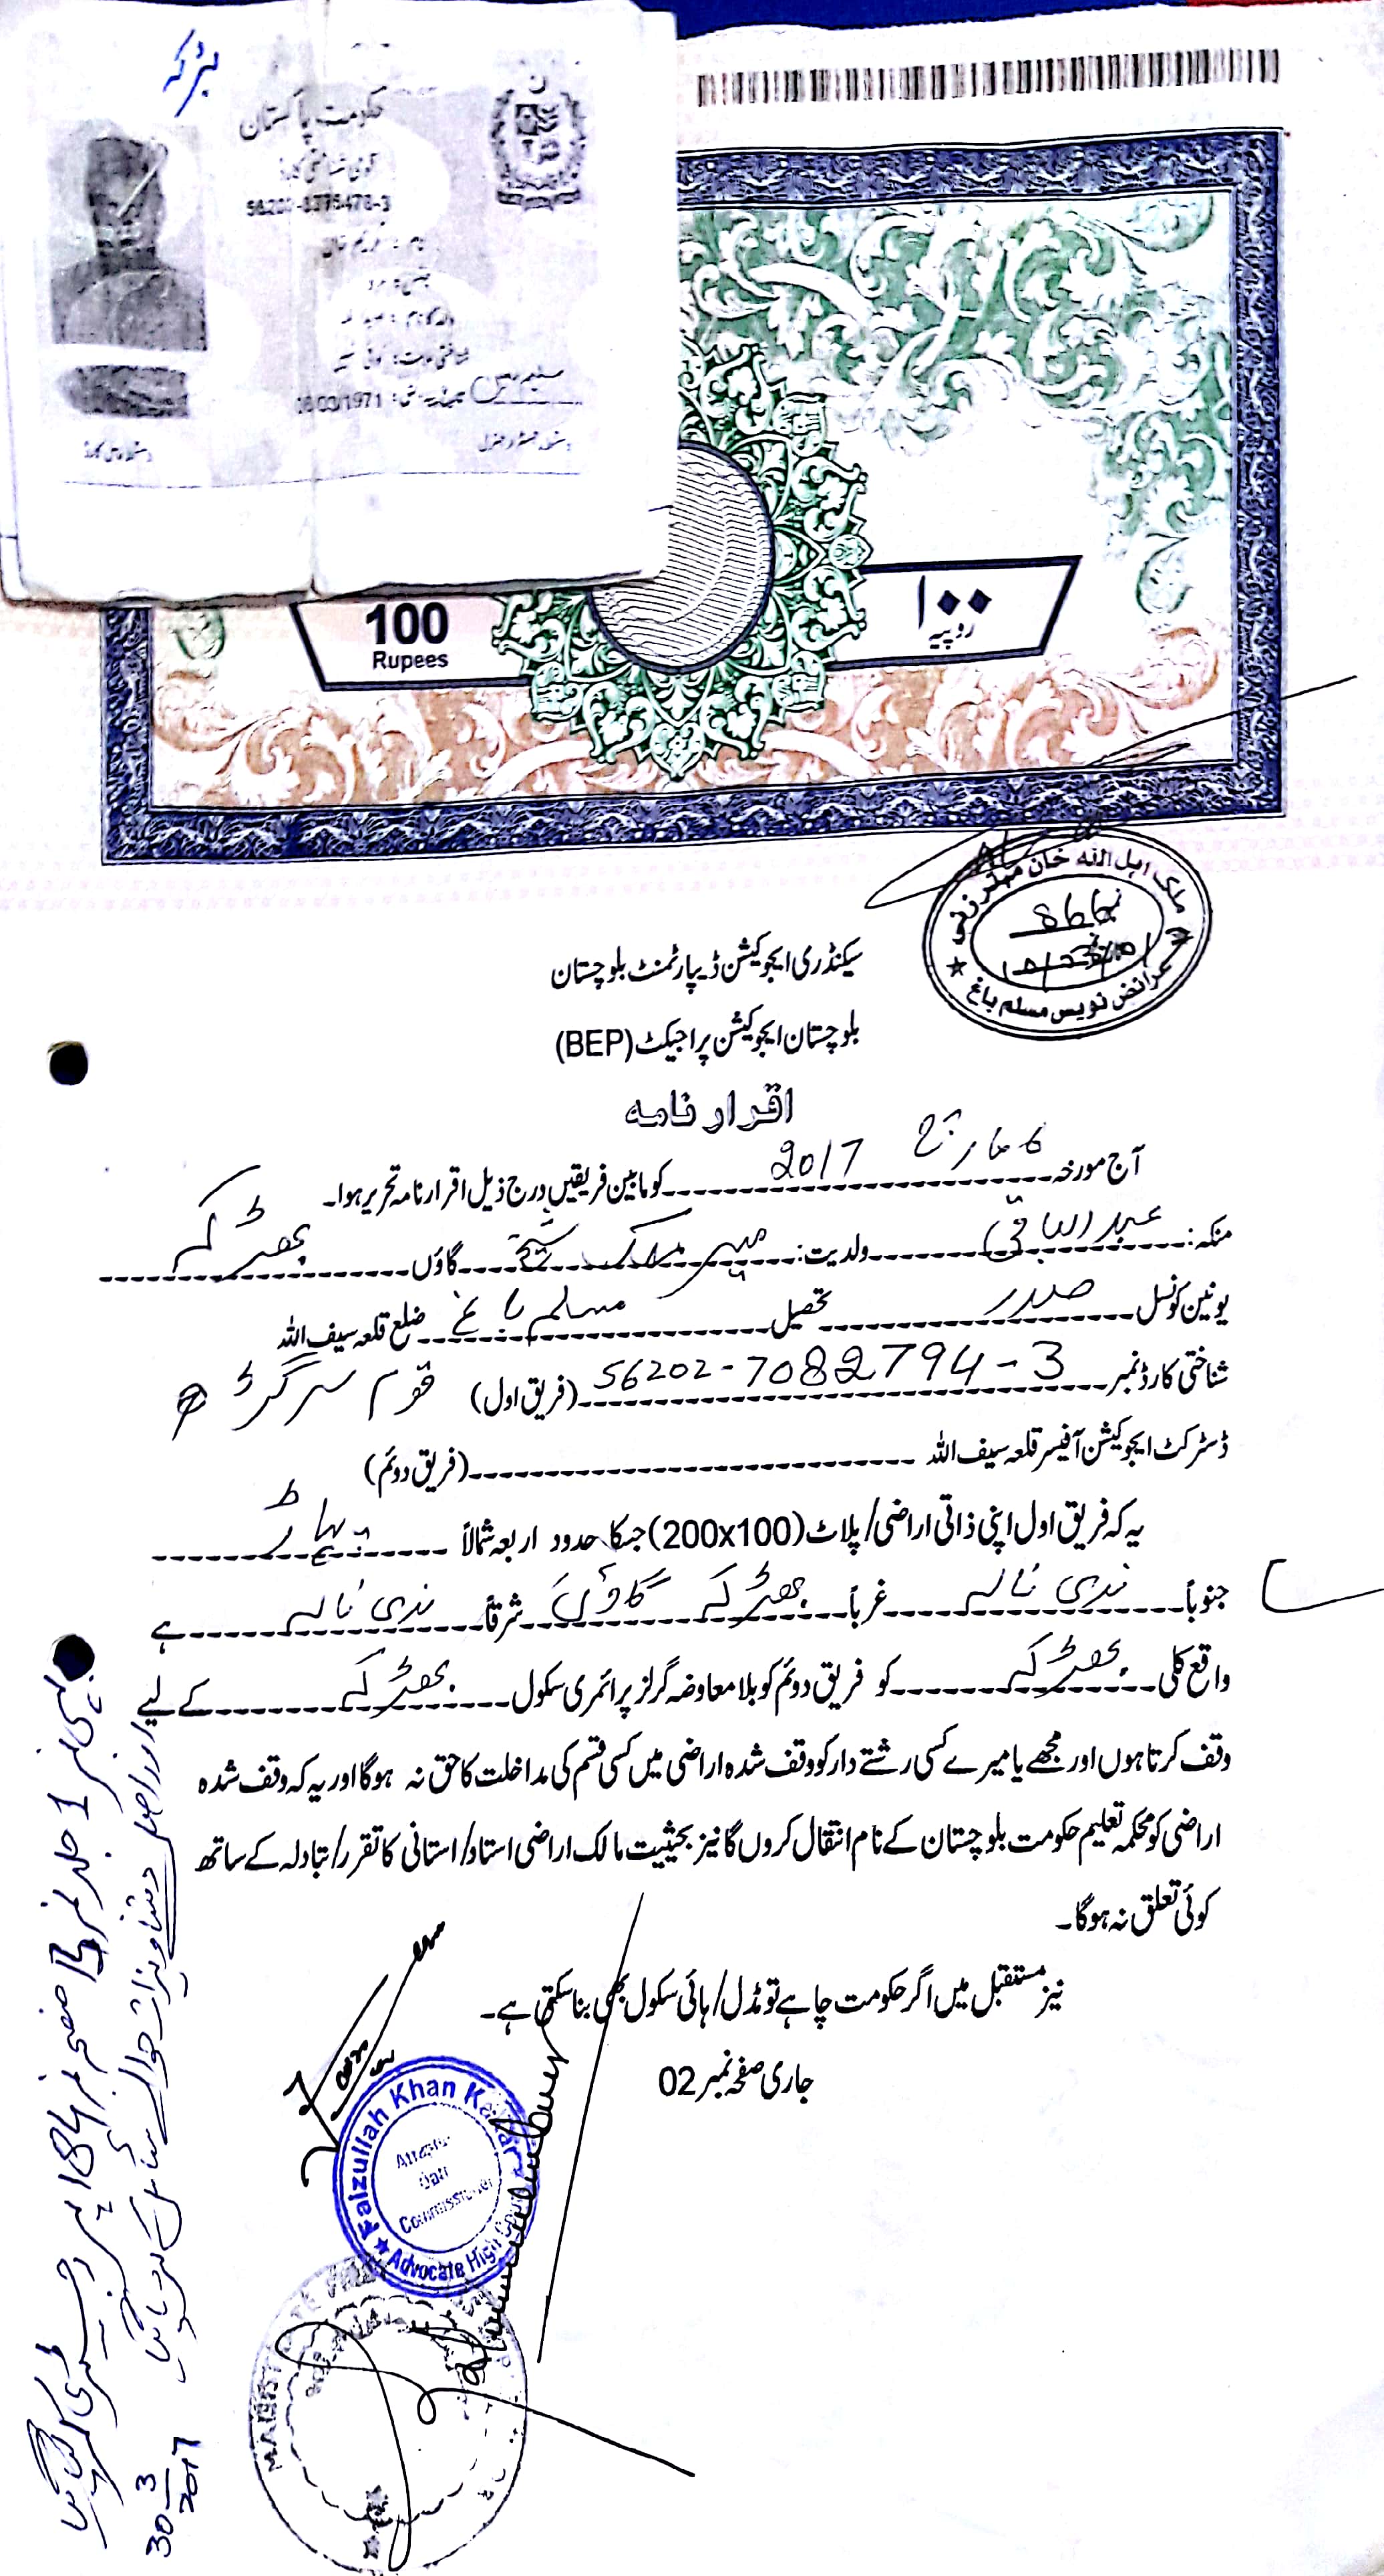 بھڑکہ
حکومت پاکستان
قومی شناختی کارڈ
نام:
جنس: مرد
شناختی علامت: کوئی نہیں
1971 تاریخ پیدائش:
100
Rupees
۱۰۰
روپیہ
ملک اہل اللہ خان مہترزئی
866
عرائض نویس مسلم باغ
سیکنڈری ایجوکیشن ڈیپارٹمنٹ بلوچستان
بلوچستان ایجوکیشن پراجیکٹ (BEP)
اقرار نامہ
آج مورخہ 6 مارچ 2017 کو مابین فریقین درج ذیل اقرار نامہ تحریر ہوا۔
منکہ: عبدالباقی ولدیت: گاؤں بھڑکہ
یونین کونسل صدر تحصیل مسلم باغ ضلع قلعہ سیف اللہ
شناختی کارڈ نمبر 56202-7082794-3 (فریق اول) قوم سرگڑھ
ڈسٹرکٹ ایجوکیشن آفیسر قلعہ سیف اللہ (فریق دوئم)
یہ کہ فریق اول اپنی ذاتی اراضی/پلاٹ (200x100) جسکا حدود اربعہ شمالاً پہاڑ
جنوباً ندی نالہ غرباً بھڑکہ گاؤں شرقاً ندی نالہ ہے
واقع کلی بھڑکہ کو فریق دوئم کو بلا معاوضہ گرلز پرائمری سکول بھڑکہ کے لیے
وقف کرتا ہوں اور مجھے یا میرے کسی رشتے دار کو وقف شدہ اراضی میں کسی قسم کی مداخلت کا حق نہ ہوگا اور یہ کہ وقف شدہ
اراضی کو محکمہ تعلیم حکومت بلوچستان کے نام انتقال کروں گا نیز بحیثیت مالک اراضی استاد/استانی کا تقرر/تبادلہ کے ساتھ
کوئی تعلق نہ ہوگا۔
نیز مستقبل میں اگر حکومت چاہے تو مڈل/ہائی سکول بھی بنا سکتی ہے۔
جاری صفحہ نمبر 02
Faizullah Khan Kakar
Oath
Commissioner
Advocate High Court
بہی نمبر 1 جلد نمبر 15 صفحہ نمبر 184 پر رجسٹری کی گئی
اور اصل دستاویزات حوالے
30 3 2017